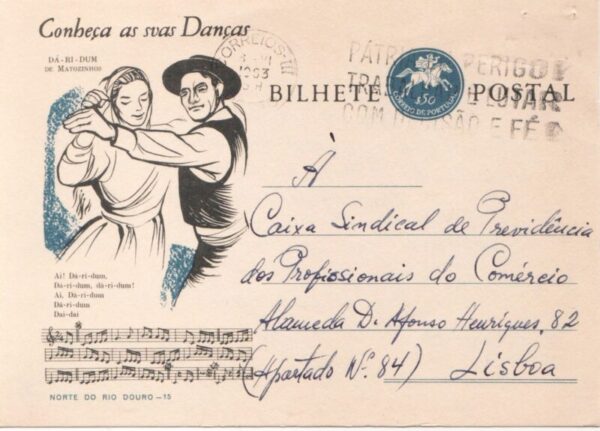 Conheça as svas Danças
DÁ-RI-DUM
DE MATOZINHOS
CORREIOS
1963
PÁTRIA PERIGO
LUTAR
COM E FÉ
BILHETE POSTAL
$50
CORREIO DE PORTUGAL
À
Caixa Sindical de Previdência
dos Profissionais do Comércio
Alameda D. Afonso Henriques, 82
(Apartado Nº. 84) Lisboa
Ai! Dá-ri-dum,
Dá-ri-dum, dá-ri-dum!
Ai, Dá-ri-dum
Dá-ri-dum
Dai-dai
NORTE DO RIO DOURO — 15